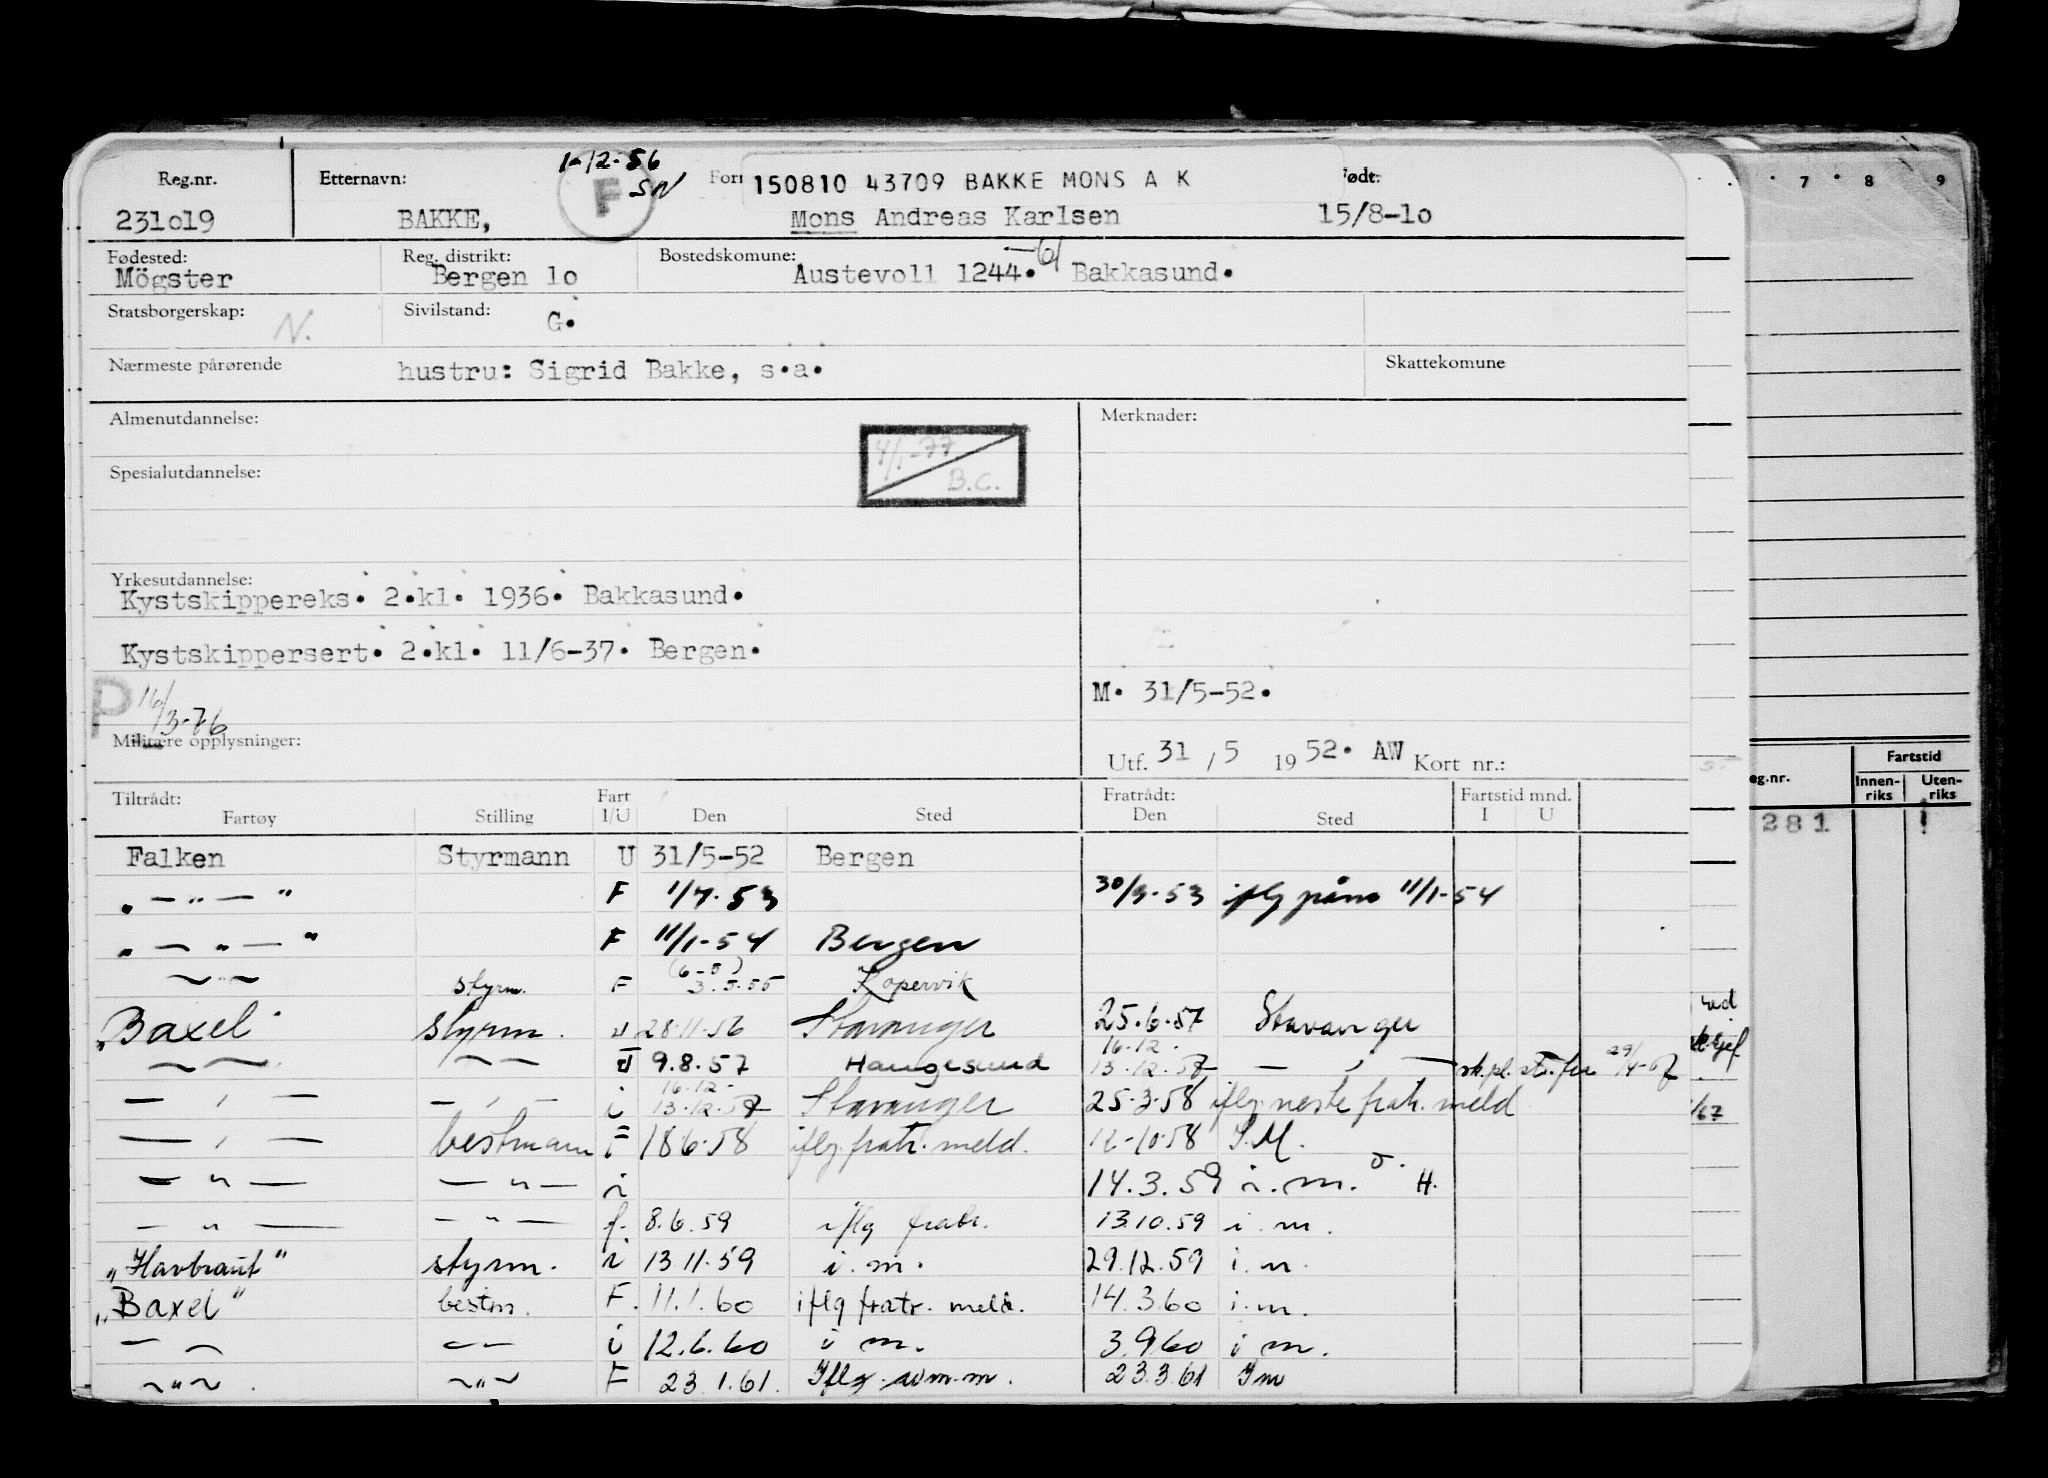 Reg.nr. Etternavn: 1-12-56 F SN Forn 150810 43709 BAKKE MONS A K Født:
231o19 BAKKE, Mons Andreas Karlsen 15/8-1o
Fødested: Reg. distrikt: Bostedskomune: -61
Mögster Bergen 1o Austevoll 1244. Bakkasund.
Statsborgerskap: N. Sivilstand: G.
Nærmeste pårørende hustru: Sigrid Bakke, s.a. Skattekomune
Almenutdannelse: Merknader:
4/1-77
Spesialutdannelse: B.C.
Yrkesutdannelse:
Kystskippereks. 2.kl. 1936. Bakkasund.
Kystskippersert. 2.kl. 11/6-37. Bergen.
P 16/3-76 M. 31/5-52.
Militære opplysninger: Utf. 31 / 5 19 52. AW Kort nr.:
Tiltrådt: Fart Fratrådt: Fartstid mnd.
Fartøy Stilling I/U Den Sted Den Sted I U
Falken Styrmann U 31/5-52 Bergen
„ — " — " F 1/7-53 30/9-53 iflg påm 11/1-54
„ — „ — " F 11/1-54 Bergen
(6-5)
— " — styrm. F 3.5.55 Kopervik
„Baxel" styrm. U 28.11.56 Stavanger 25.6.57 Stavanger
16.12.
— — — — U 9.8.57 Haugesund 13.12.57 — , — sk.pl. st. fra 29/4-67
16.12.
— , — — , — i 13.12.57 Stavanger 25.3.58 iflg neste fratr. meld
— , — bestmann i 18.6.58 iflg fratr. meld. 12-10.58 I.M.
— " — — " — i 14.3.59 i.m. H.
— " — — " — f. 8.6.59 iflg fratr. 13.10.59 i.m.
„Havbraut" styrm. i 13.11.59 i.m. 29.12.59 i.m.
„Baxel" bestm. F. 11.1.60 iflg fratr. meld. 14.3.60 i.m.
— — — — i 12.6.60 i m. 3.9.60 i m.
— " — — " — F 23.1.61. Iflg. 23.3.61 Im
7 8 9
eg.nr. Fartstid
Innen-riks Uten-riks
281